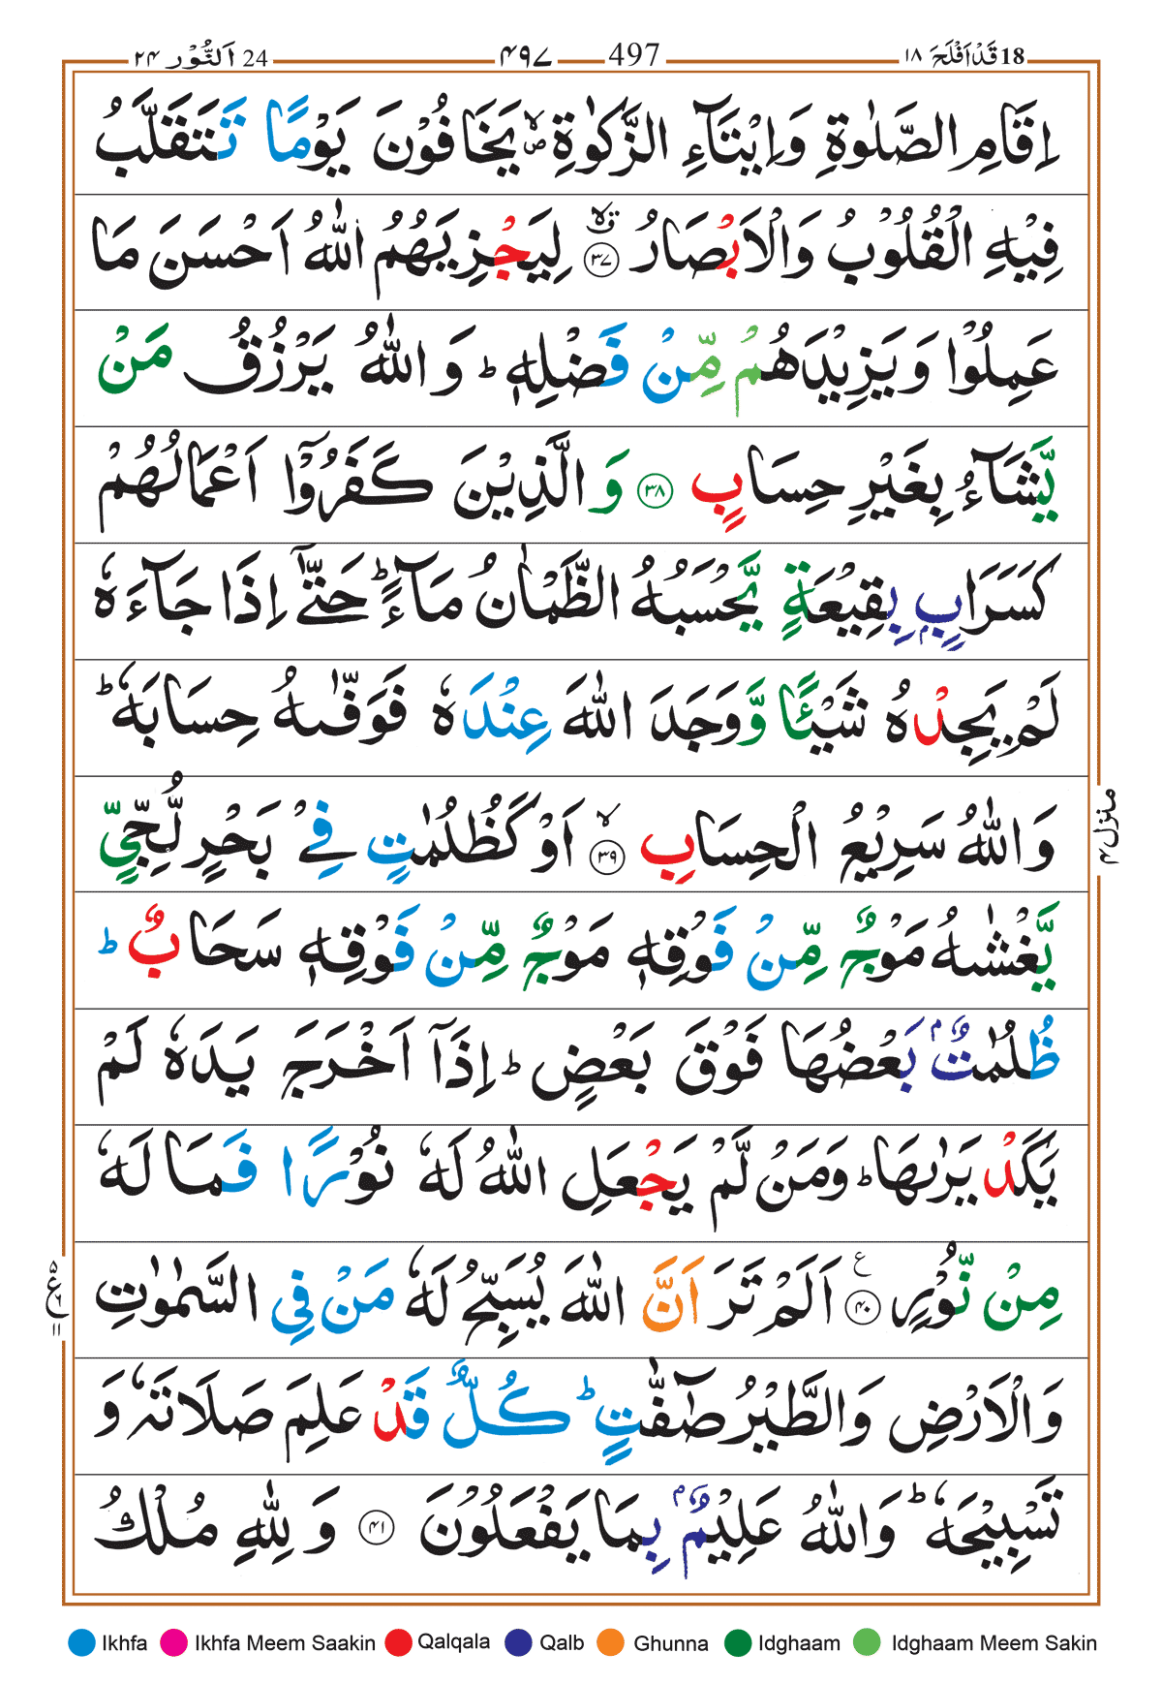 18 قَدْ اَفْلَحَ ١٨ 497 ۴۹۷ 24 اَلنُّوْر ۲۴
اِقَامِ الصَّلٰوةِ وَاِيْتَآءِ الزَّكٰوةِ ۙ يَخَافُوْنَ يَوْمًا تَتَقَلَّبُ
فِيْهِ الْقُلُوْبُ وَالْاَبْصَارُ ۙ ﴿۳۷﴾ لِيَجْزِيَهُمُ اللّٰهُ اَحْسَنَ مَا
عَمِلُوْا وَيَزِيْدَهُمْ مِّنْ فَضْلِهٖ ؕ وَاللّٰهُ يَرْزُقُ مَنْ
يَّشَآءُ بِغَيْرِ حِسَابٍ ﴿۳۸﴾ وَالَّذِيْنَ كَفَرُوْۤا اَعْمَالُهُمْ
كَسَرَابٍۭ بِقِيْعَةٍ يَّحْسَبُهُ الظَّمْاٰنُ مَآءً ؕ حَتّٰۤى اِذَا جَآءَهٗ
لَمْ يَجِدْهُ شَيْـًٔا وَّوَجَدَ اللّٰهَ عِنْدَهٗ فَوَفّٰىهُ حِسَابَهٗ ؕ
وَاللّٰهُ سَرِيْعُ الْحِسَابِ ۙ ﴿۳۹﴾ اَوْ كَظُلُمٰتٍ فِيْ بَحْرٍ لُّجِّيٍّ
يَّغْشٰىهُ مَوْجٌ مِّنْ فَوْقِهٖ مَوْجٌ مِّنْ فَوْقِهٖ سَحَابٌ ؕ
ظُلُمٰتٌۢ بَعْضُهَا فَوْقَ بَعْضٍ ؕ اِذَاۤ اَخْرَجَ يَدَهٗ لَمْ
يَكَدْ يَرٰىهَا ؕ وَمَنْ لَّمْ يَجْعَلِ اللّٰهُ لَهٗ نُوْرًا فَمَا لَهٗ
مِنْ نُّوْرٍ ﴿۴۰﴾ ع اَلَمْ تَرَ اَنَّ اللّٰهَ يُسَبِّحُ لَهٗ مَنْ فِى السَّمٰوٰتِ
وَالْاَرْضِ وَالطَّيْرُ صٰٓفّٰتٍ ؕ كُلٌّ قَدْ عَلِمَ صَلَاتَهٗ وَ
تَسْبِيْحَهٗ ؕ وَاللّٰهُ عَلِيْمٌۢ بِمَا يَفْعَلُوْنَ ﴿۴۱﴾ وَلِلّٰهِ مُلْكُ
منزل ۴
Ikhfa Ikhfa Meem Saakin Qalqala Qalb Ghunna Idghaam Idghaam Meem Sakin